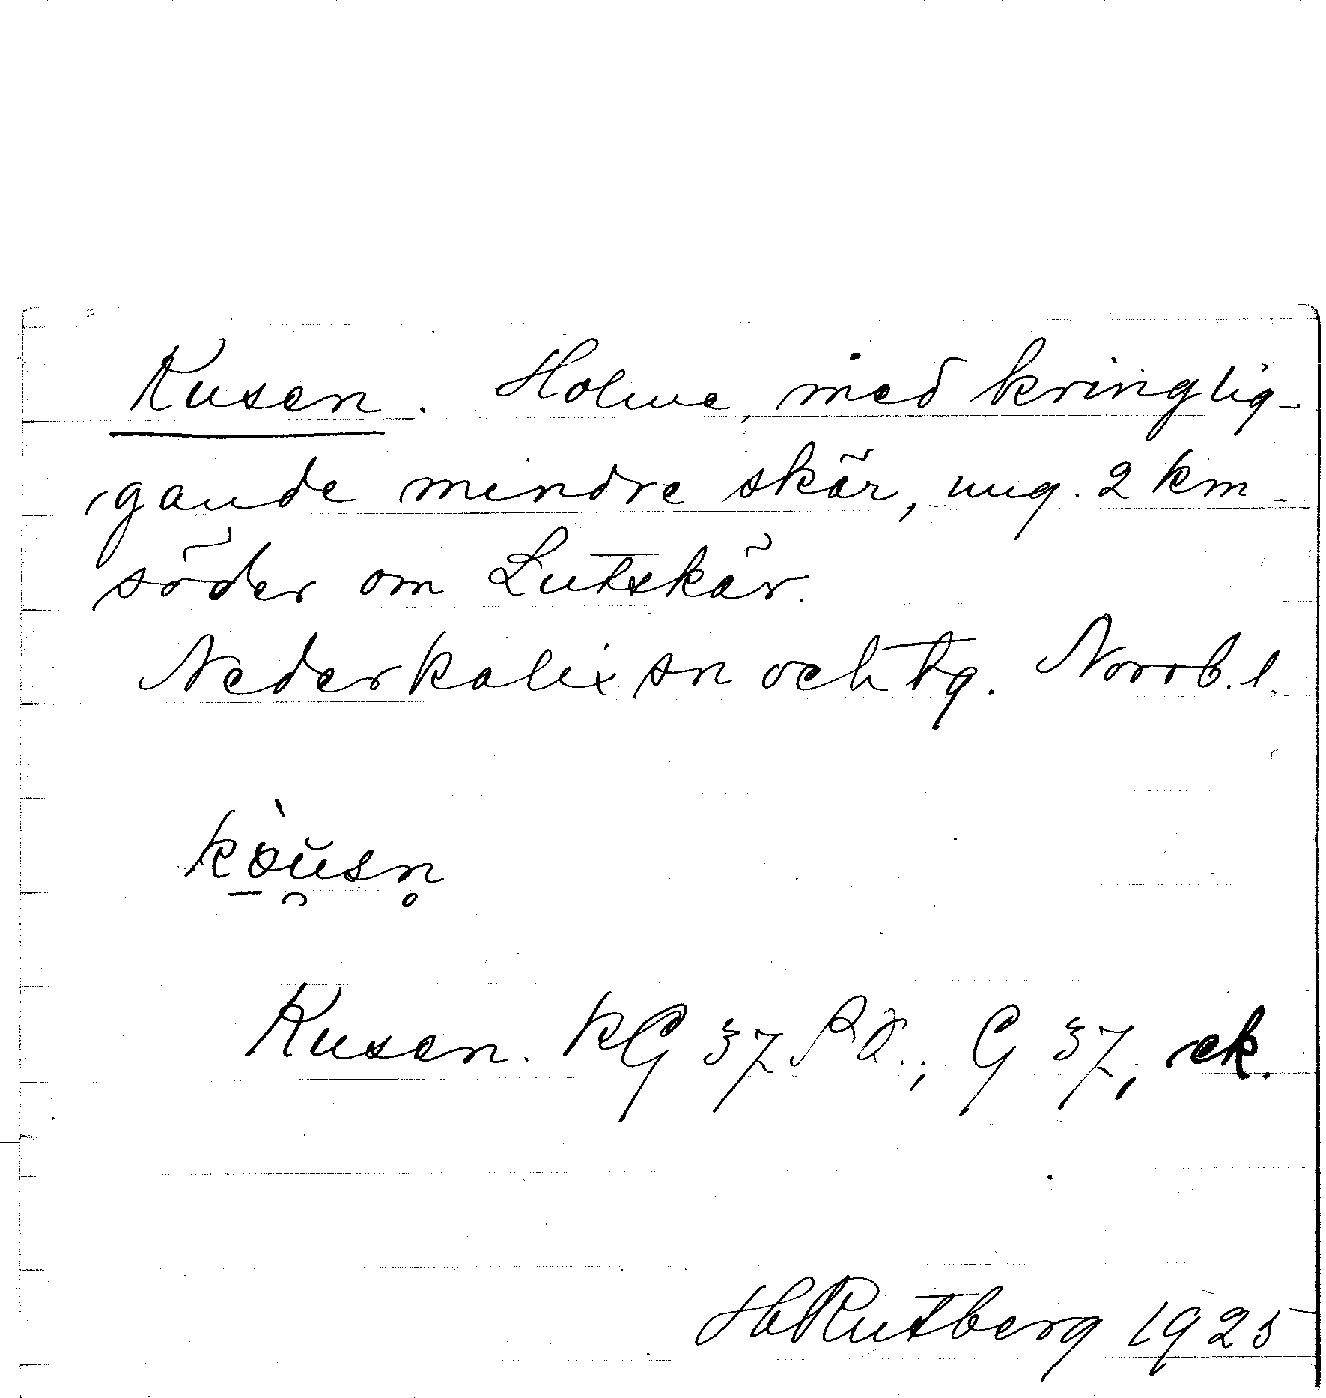 Kusen. Holme, med kringlig-
gande mindre skär, ung. 2 km
söder om Lutskär.
Nederkalix sn och tg. Norrb. l.
kòusn
Kusen. KG 37 SÖ., G 37, ek.
H Rutberg 1925